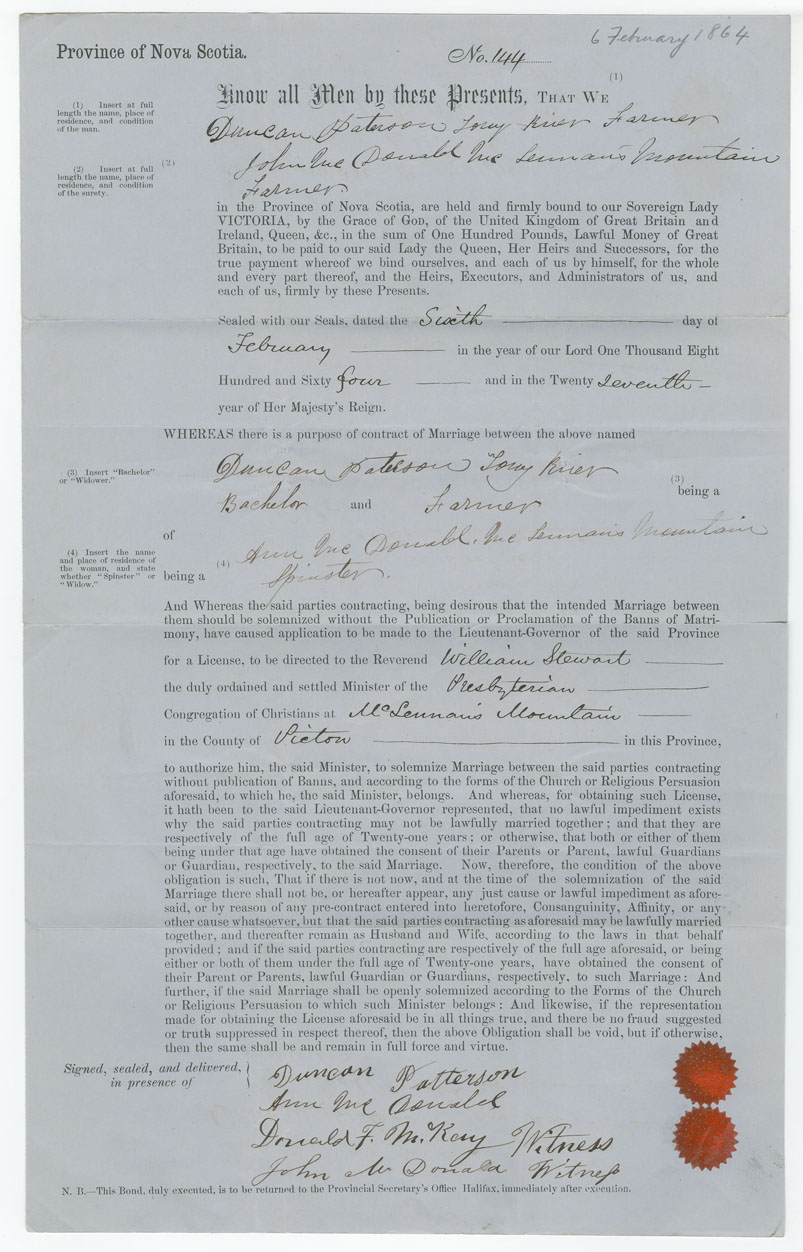 6 February 1864
Province of Nova Scotia.
No. 144
Know all Men by these Presents, THAT WE (1)
(1) Insert at full
length the name, place of
residence, and condition
of the man.
Duncan Paterson Tony River Farmer
(2) Insert at full
length the name, place of
residence, and condition
of the surety.
(2)
John Mc Donald Mc Lennan's Mountain
Farmer
in the Province of Nova Scotia, are held and firmly bound to our Sovereign Lady
VICTORIA, by the Grace of God, of the United Kingdom of Great Britain and
Ireland, Queen, &c., in the sum of One Hundred Pounds, Lawful Money of Great
Britain, to be paid to our said Lady the Queen, Her Heirs and Successors, for the
true payment whereof we bind ourselves, and each of us by himself, for the whole
and every part thereof, and the Heirs, Executors, and Administrators of us, and
each of us, firmly by these Presents.
Sealed with our Seals, dated the Sixth day of
February in the year of our Lord One Thousand Eight
Hundred and Sixty four and in the Twenty seventh
year of Her Majesty's Reign.
WHEREAS there is a purpose of contract of Marriage between the above named
(3) Insert "Bachelor"
or "Widower."
Duncan Paterson Tony River
(3)
being a
Bachelor and Farmer
of
(4) Insert the name
and place of residence of
the woman, and state
whether "Spinster" or
"Widow."
(4)
Ann Mc Donald. Mc Lennan's Mountain
being a Spinster.
And Whereas the said parties contracting, being desirous that the intended Marriage between
them should be solemnized without the Publication or Proclamation of the Banns of Matri-
mony, have caused application to be made to the Lieutenant-Governor of the said Province
for a License, to be directed to the Reverend William Stewart
the duly ordained and settled Minister of the Presbyterian
Congregation of Christians at McLennan's Mountain
in the County of Pictou in this Province,
to authorize him, the said Minister, to solemnize Marriage between the said parties contracting
without publication of Banns, and according to the forms of the Church or Religious Persuasion
aforesaid, to which he, the said Minister, belongs. And whereas, for obtaining such License,
it hath been to the said Lieutenant-Governor represented, that no lawful impediment exists
why the said parties contracting may not be lawfully married together; and that they are
respectively of the full age of Twenty-one years; or otherwise, that both or either of them
being under that age have obtained the consent of their Parents or Parent, lawful Guardians
or Guardian, respectively, to the said Marriage. Now, therefore, the condition of the above
obligation is such, That if there is not now, and at the time of the solemnization of the said
Marriage there shall not be, or hereafter appear, any just cause or lawful impediment as afore-
said, or by reason of any pre-contract entered into heretofore, Consanguinity, Affinity, or any
other cause whatsoever, but that the said parties contracting as aforesaid may be lawfully married
together, and thereafter remain as Husband and Wife, according to the laws in that behalf
provided; and if the said parties contracting are respectively of the full age aforesaid, or being
either or both of them under the full age of Twenty-one years, have obtained the consent of
their Parent or Parents, lawful Guardian or Guardians, respectively, to such Marriage: And
further, if the said Marriage shall be openly solemnized according to the Forms of the Church
or Religious Persuasion to which such Minister belongs: And likewise, if the representation
made for obtaining the License aforesaid be in all things true, and there be no fraud suggested
or truth suppressed in respect thereof, then the above Obligation shall be void, but if otherwise,
then the same shall be and remain in full force and virtue.
Signed, sealed, and delivered,
in presence of
Duncan Patterson
Ann Mc Donald
Donald F. McKay Witness
John Mc Donald Witness
N. B.—This Bond, duly executed, is to be returned to the Provincial Secretary's Office Halifax, immediately after execution.